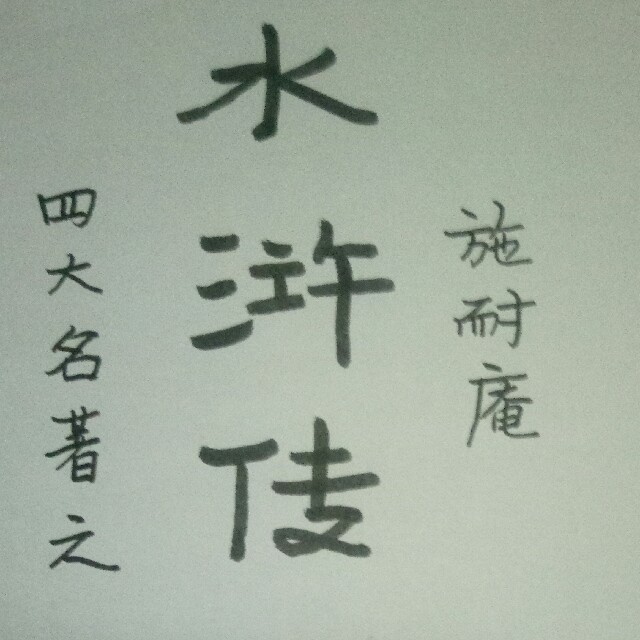 施耐庵
水浒传
四大名著之